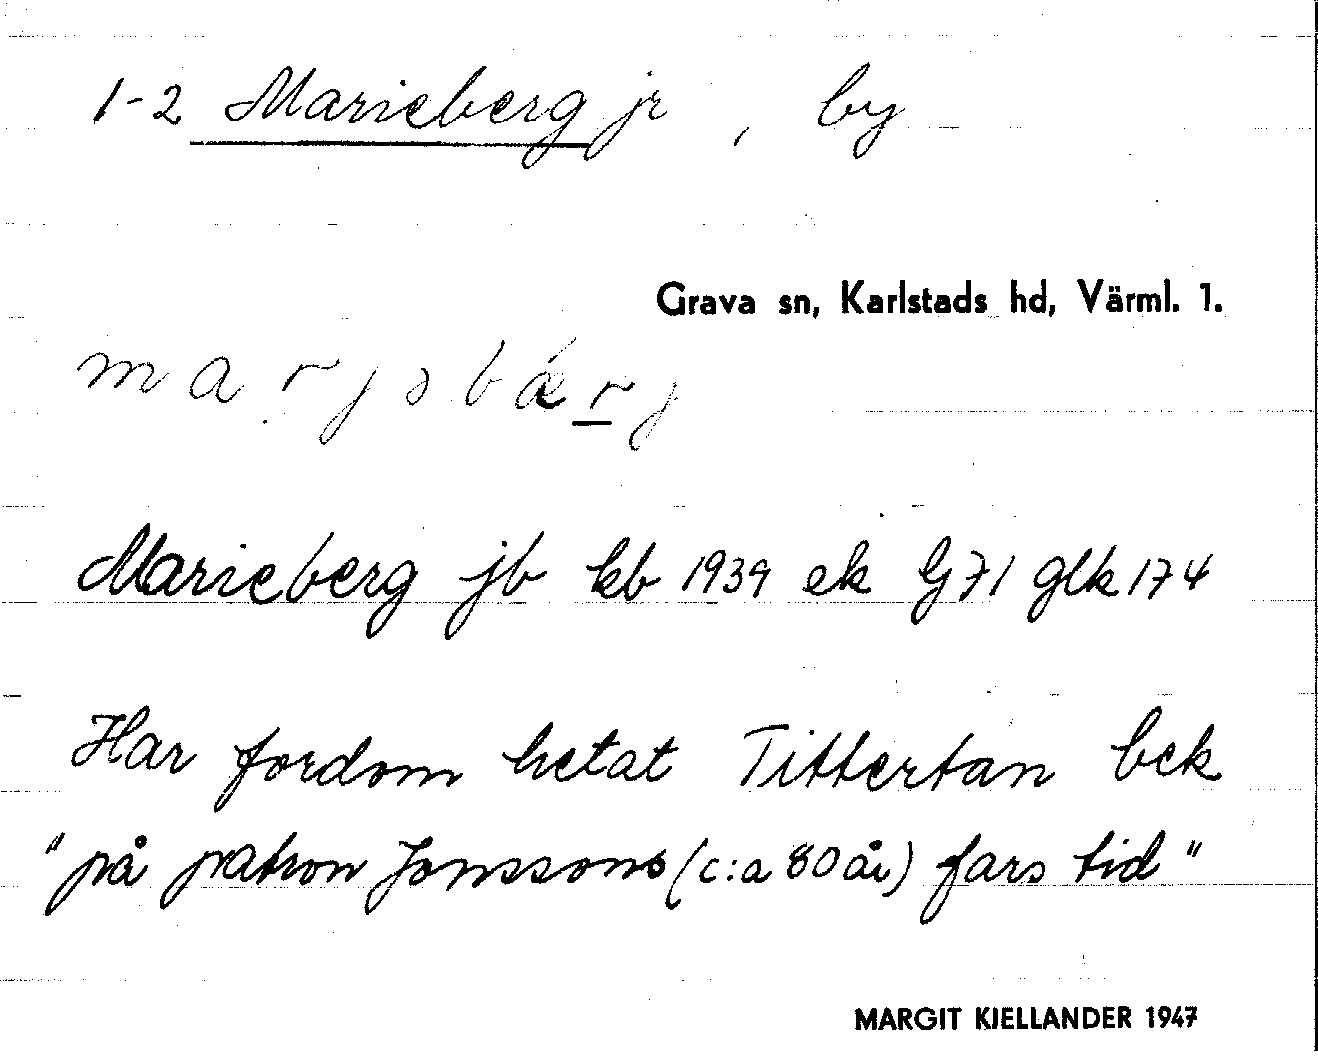 1-2 Marieberg jr , by
Grava sn, Karlstads hd, Värml. 1.
Marieberg jb kb 1939 ek G71 glk 174
Har fordom hetat Tittertan bek
"på patron Jonssons (c:a 80 år) fars tid"
MARGIT KJELLANDER 1947